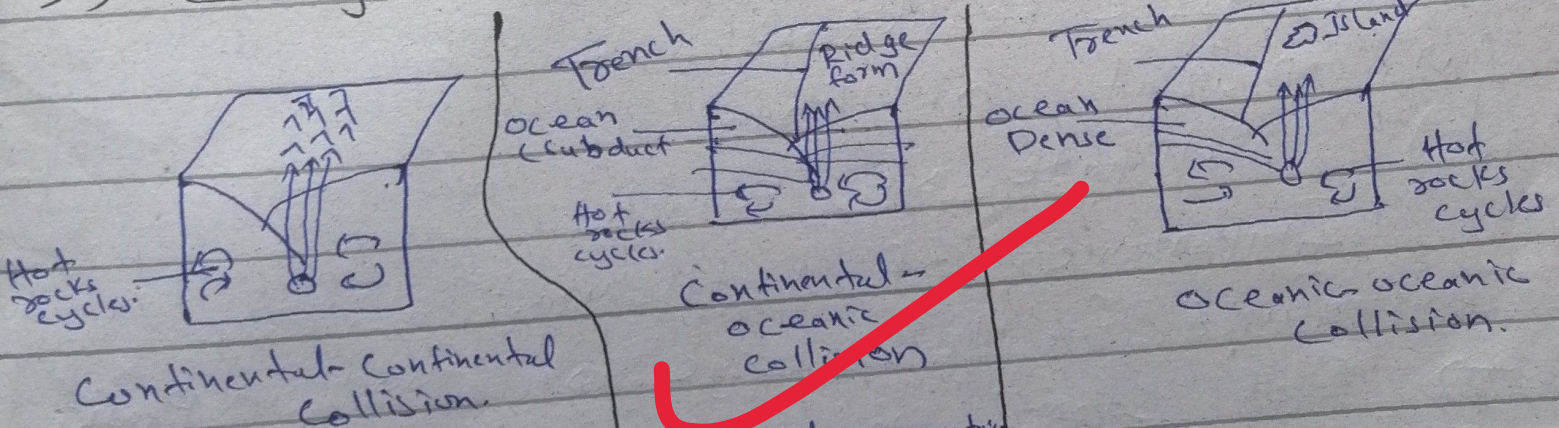 Hot
rocks
cycles.
Continental-Continental
Collision.
Trench
Ridge
form
Ocean
(Subduct
Hot
rocks
cycles.
Continental-
oceanic
Collision
Trench
Island
Ocean
Dense
Hot
rocks
cycles
Oceanic-oceanic
Collision.